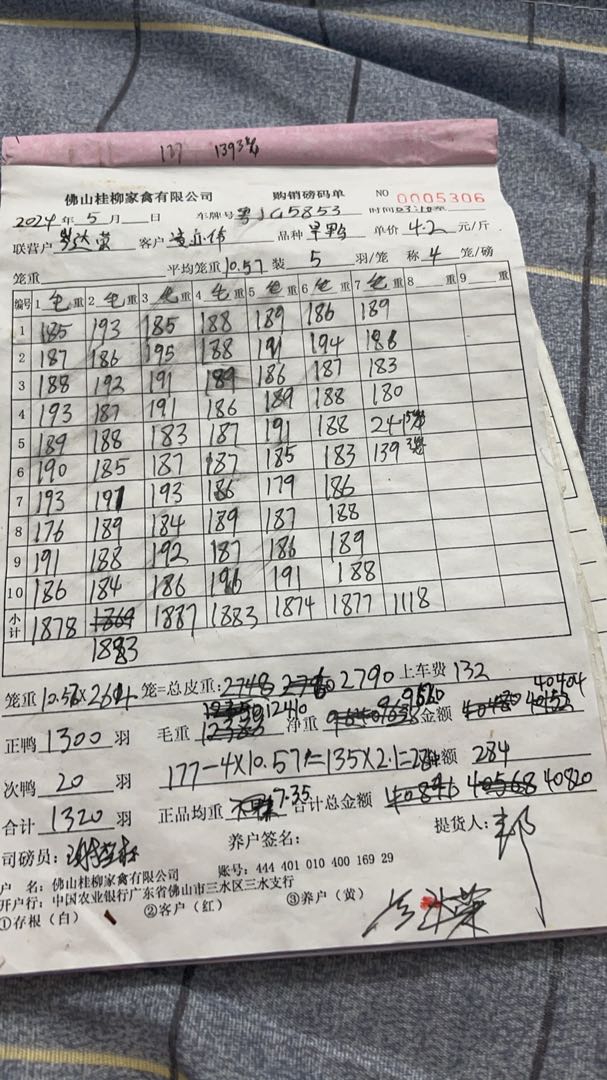 137 1393
佛山桂柳家禽有限公司 购销磅码单 NO 0005306
2024年5月 日 车牌号 粤JG5853 时间03:10
联营户 客户 品种 旱鸭 单价 4.2 元/斤
笼重 平均笼重10.57装 5 羽/笼 称 4 笼/磅
编号 1 毛重 2 毛重 3 毛重 4 毛重 5 毛重 6 毛重 7 毛重 8 重 9 重
1 185 193 185 188 189 186 189
2 187 186 195 188 191 194 186
3 188 192 191 189 186 187 183
4 193 187 191 186 189 188 180
5 189 188 183 187 191 188 24
6 190 185 187 187 185 183 139
7 193 191 193 186 179 186
8 176 189 184 189 187 188
9 191 188 192 187 186 189
10 186 184 186 196 191 188
小计 1878 1869 1887 1883 1874 1877 1118
1883
笼重 10.57×264 笼=总皮重: 2748 2790 上车费 132
12410 9660 40404
正鸭 1300 羽 毛重 净重 金额
次鸭 20 羽 177-4×10.57=135×2.1=284 额 284
合计 1320 羽 正品均重 7.35 合计总金额 40846 40568 40820
司磅员: 养户签名: 提货人:
户 名: 佛山桂柳家禽有限公司 账号: 444 401 010 400 169 29
开户行: 中国农业银行广东省佛山市三水区三水支行
①存根(白) ②客户(红) ③养户(黄)